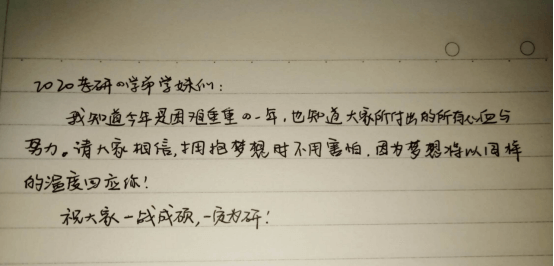 2020考研的学弟学妹们:
我知道今年是困难重重的一年,也知道大家所付出的所有心血与
努力。请大家相信,拥抱梦想时不用害怕,因为梦想将以同样
的温度回应你!
祝大家一战成硕,一定为研!